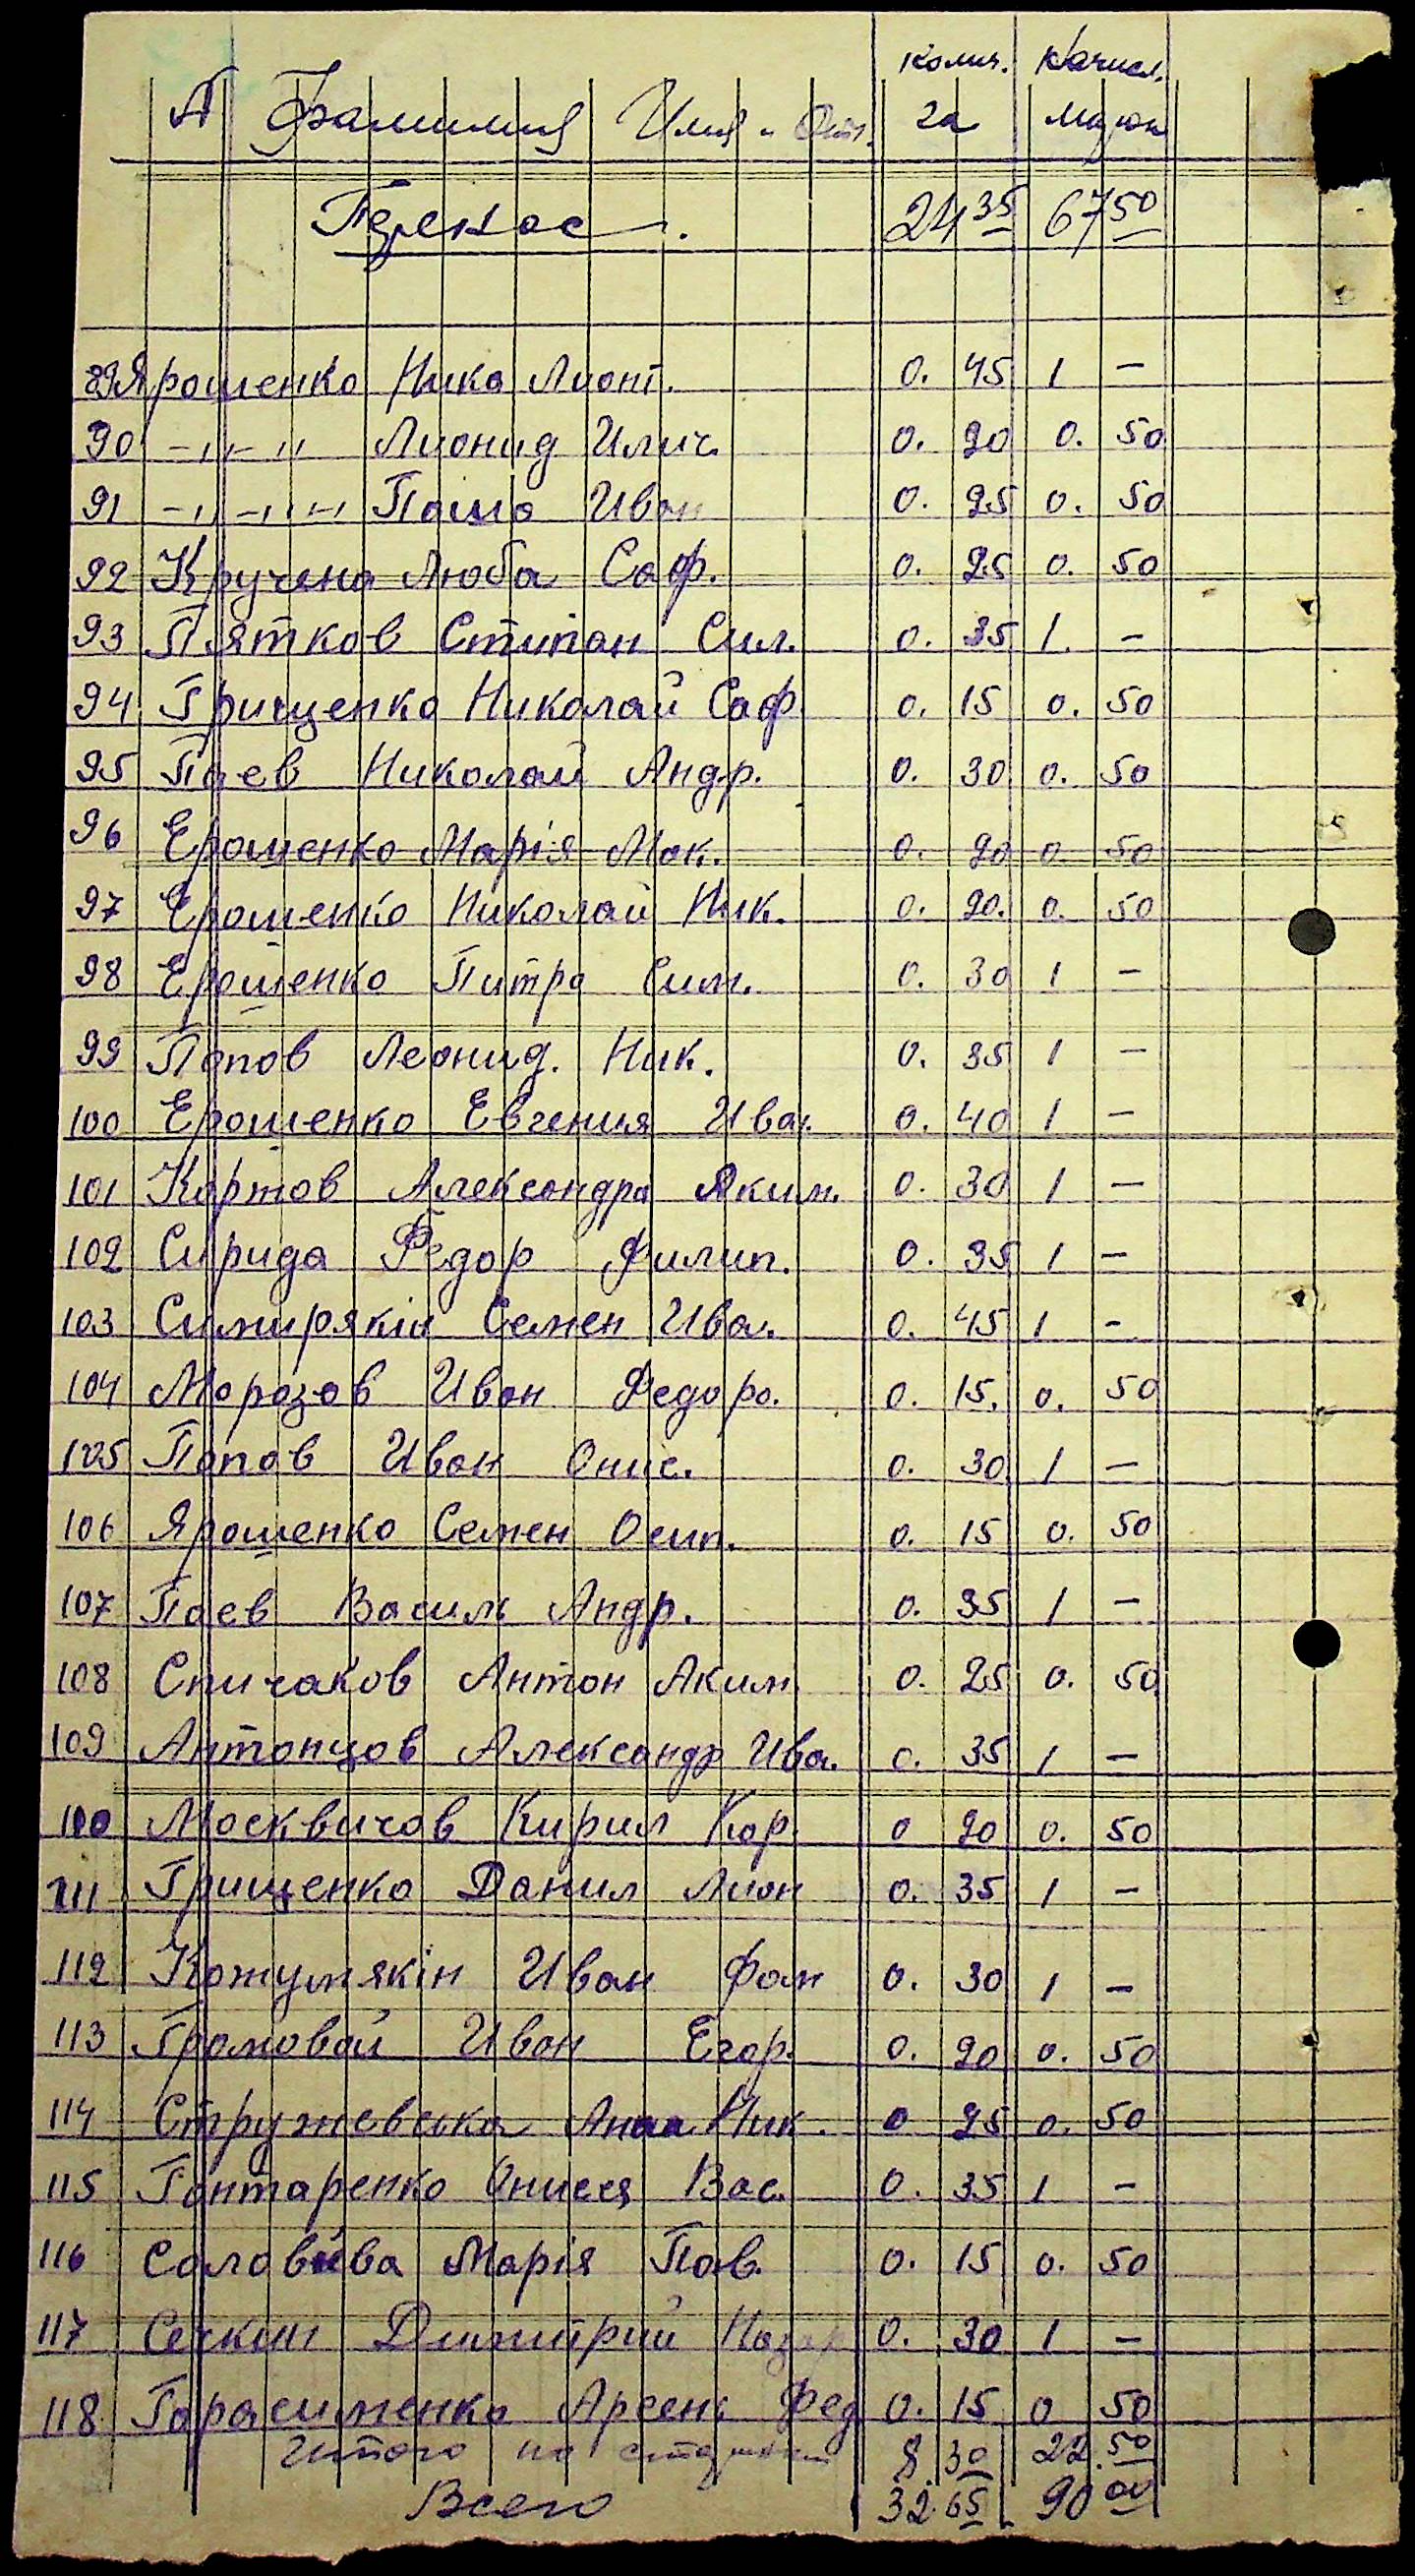 Колич. Начисл.
№ Фамилия Имя и Отч. га
Перенос. 24 35 67 50
89 Ярошенко Нико Лионт. 0. 45 1 —
90 -„-„ Лионид Илич. 0. 20 0. 50
91 -„-„-„ Паша Иван 0. 25 0. 50
92 Кручина Люба Саф. 0. 25 0. 50
93 Пятков Стипан Сил. 0. 35 1. —
94 Грищенко Николай Саф. 0. 15 0. 50
95 Паев Николай Андр. 0. 30 0. 50
96 Ерошенко Марія Мак. 0. 20 0. 50
97 Ерошенко Николай Ник. 0. 20. 0. 50
98 Ерошенко Питро Сим. 0. 30 1 —
99 Попов Леонид. Ник. 0. 35 1 —
100 Ерошенко Евгения Иван. 0. 40 1 —
101 Картов Александра Яким. 0. 30 1 —
102 Сирида Федор Филип. 0. 35 1 —
103 Симирякін Семен Ива. 0. 45 1 —
104 Морозов Иван Федоро. 0. 15. 0. 50
105 Попов Иван Онис. 0. 30 1 —
106 Ярошенко Семен Осип. 0. 15 0. 50
107 Паев Василь Андр. 0. 35 1 —
108 Спичаков Антон Аким. 0. 25 0. 50
109 Антонцов Александр Ива. 0. 35 1 —
110 Москвичов Кирил Кор. 0 20 0. 50
111 Грищенко Данил Лион 0. 35 1 —
112 Кожумякін Иван Фом 0. 30 1 —
113 Громовой Иван Егор. 0. 20 0. 50
114 Стружевська Анна Ник. 0 25 0. 50
115 Гонтаренко Онисея Вас. 0. 35 1 —
116 Соловйева Марія Пав. 0. 15 0. 50
117 Сечкин Димитрий Назар 0. 30 1 —
118 Гарасименко Арсень Фед 0. 15 0 50
Итого по 8. 30 22. 50
Всего 32. 65 90 00